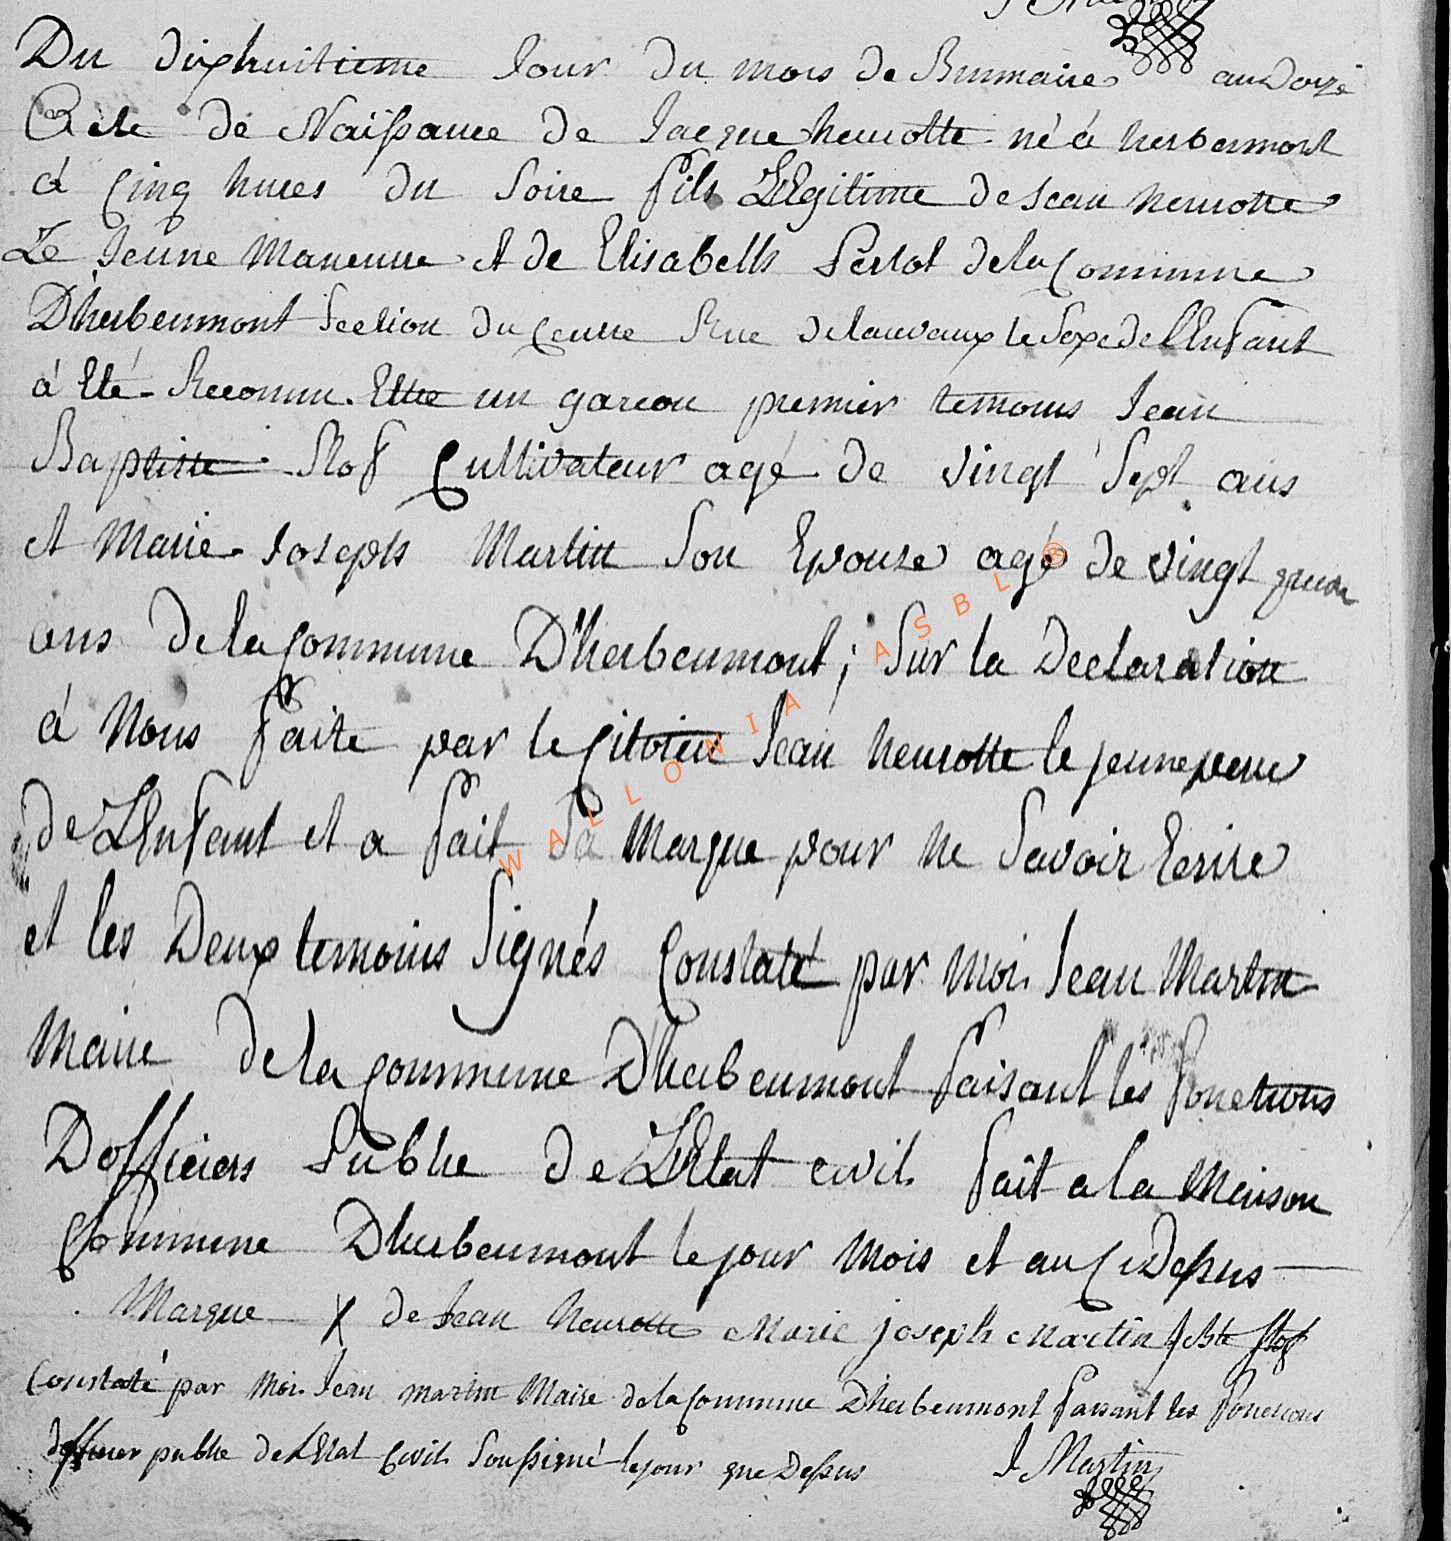 Du dixhuitieme Jour du mois de Brumaire an Doize
Acte de Naissance de Jacque heurotte né á herbeumont
á Cinq hures du Soire fils Legitime de Jean heurotte
Le Jeune Maneuvre et de Elisabeth Perlot de la Commune
D'herbeumont Section du Centre Rue de lauvaux le Sexe de l'Enfant
á Eté Reconnu Etre un garcon premier temoins Jean
Baptiste Slof Cultivateur agé de vingt Sept ans
et Marie Joseph Martin Son Epouze agé de vingt
ans de la Commune D'herbeumont ; Sur la Declaration
á Nous faite par le Citoien Jean heurotte le jeune pere
de L'Enfant et a fait Sa Marque pour ne Savoir Ecrire
et les Deux temoins Signés Constaté par Moi Jean Martin
Maire de la Commune D'herbeumont faisant les fonctions
D'officiers Public de L'Etat civil fait a la Maison
Commune D'herbeumont le jour Mois et an Ci Desus
Marque X de Jean heurotte Marie joseph Martin J Bte Slof
Constaté par Moi Jean Martin Maire de la Commune D'herbeumont faisant les fonctions
d'officier public de L'Etat Civil Soussigné le jour que Desus J Martin
WALLONIA ASBL ®